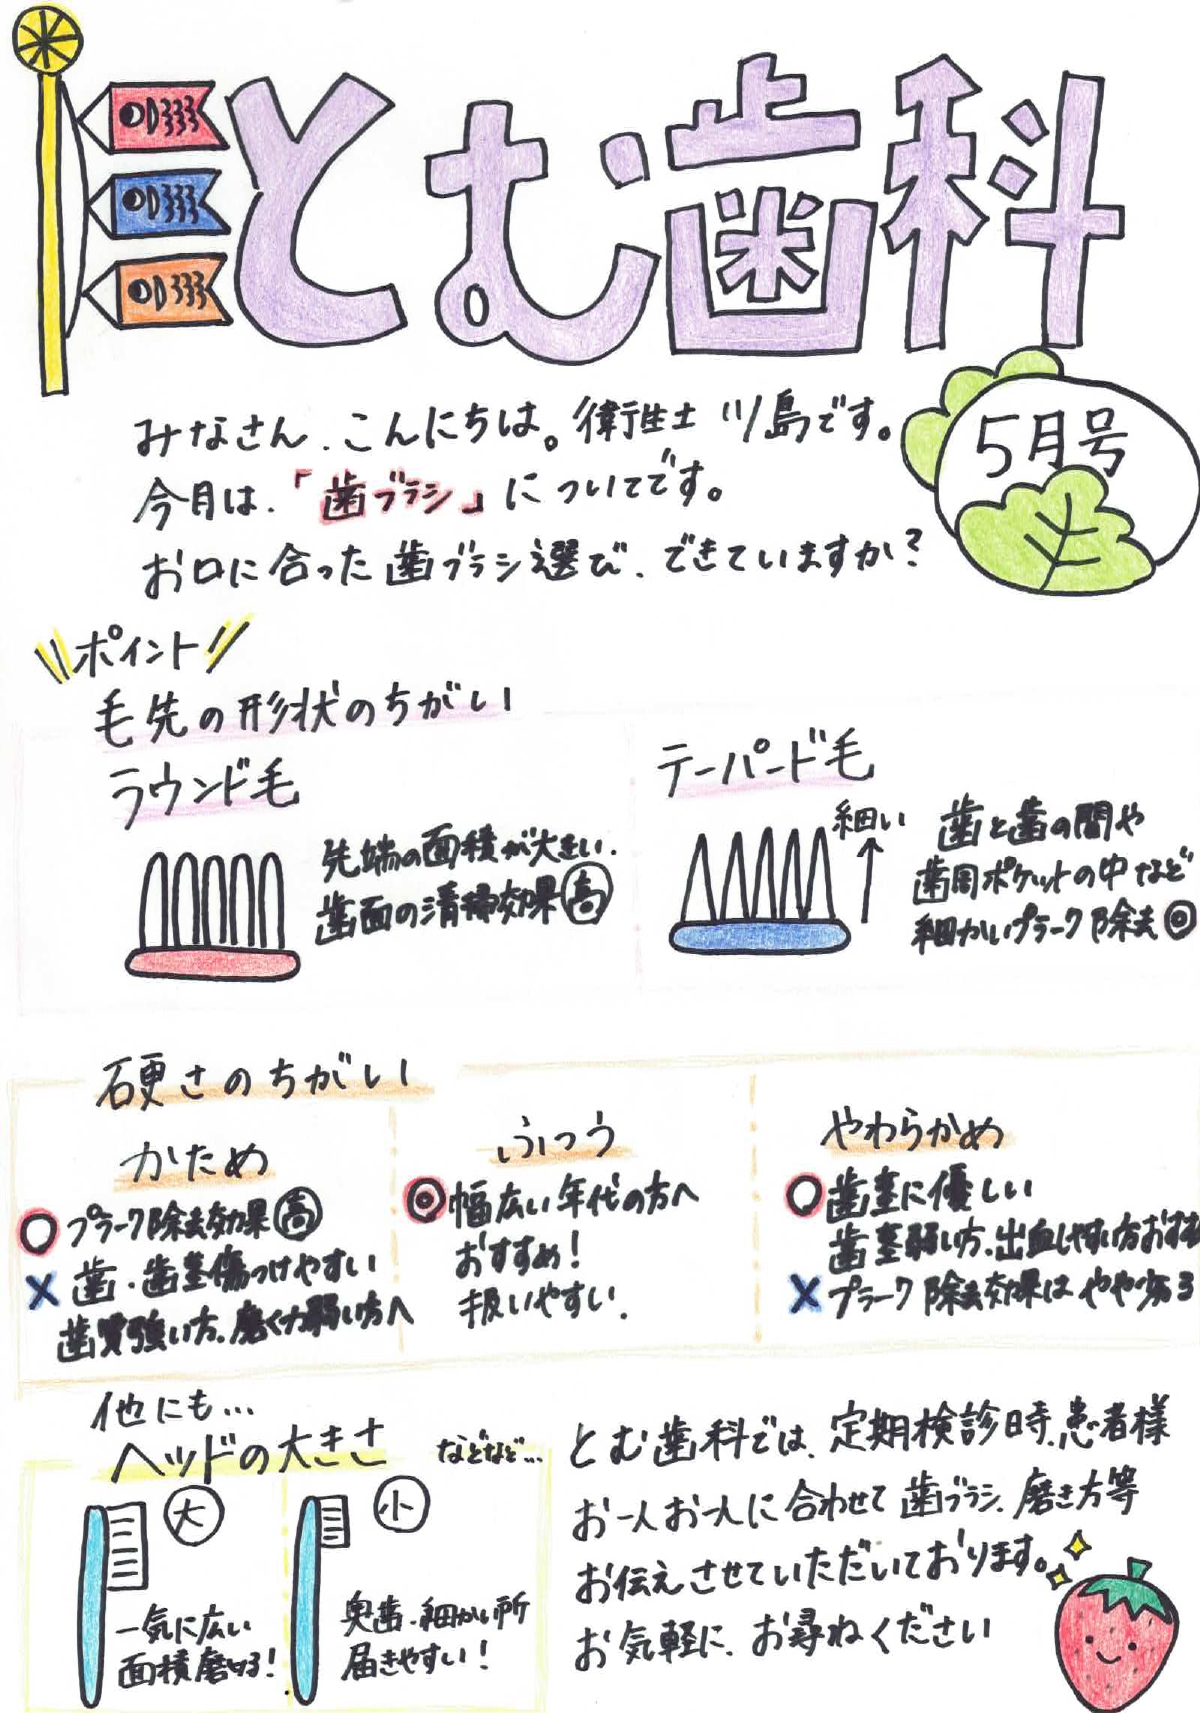 とむ歯科
5月号
みなさん、こんにちは。衛生士 川島です。
今月は、「歯ブラシ」についてです。
お口に合った歯ブラシ選び、できていますか?
ポイント
毛先の形状のちがい
ラウンド毛
先端の面積が大きい、
歯面の清掃効果高
テーパード毛
細い
歯と歯の間や
歯周ポケットの中など
細かいプラーク除去◎
硬さのちがい
かため
○プラーク除去効果高
×歯・歯茎傷つけやすい
歯質強い方、磨く力弱い方へ
ふつう
◎幅広い年代の方へ
おすすめ!
扱いやすい、
やわらかめ
○歯茎に優しい
歯茎弱い方、出血しやすい方おすすめ
×プラーク除去効果は、やや劣る
他にも…
ヘッドの大きさ
などなど…
大
一気に広い
面積磨ける!
小
奥歯・細かい所
届きやすい!
とむ歯科では、定期検診時、患者様
お一人お一人に合わせて歯ブラシ、磨き方等
お伝えさせていただいております。
お気軽に、お尋ねください